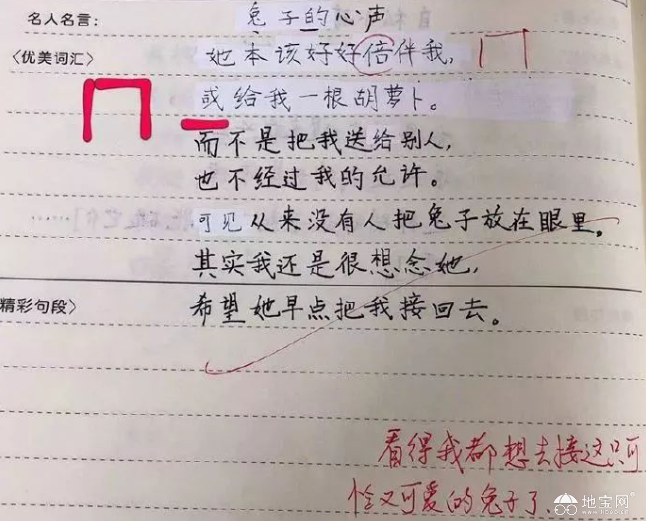 名人名言:
兔子的心声
〈优美词汇〉
她本该好好倍伴我,
或给我一根胡萝卜。
而不是把我送给别人,
也不经过我的允许。
可见从来没有人把兔子放在眼里。
其实我还是很想念她,
精彩句段〉
希望她早点把我接回去。
看得我都想去接这只可
怜又可爱的兔子了.
地宝网